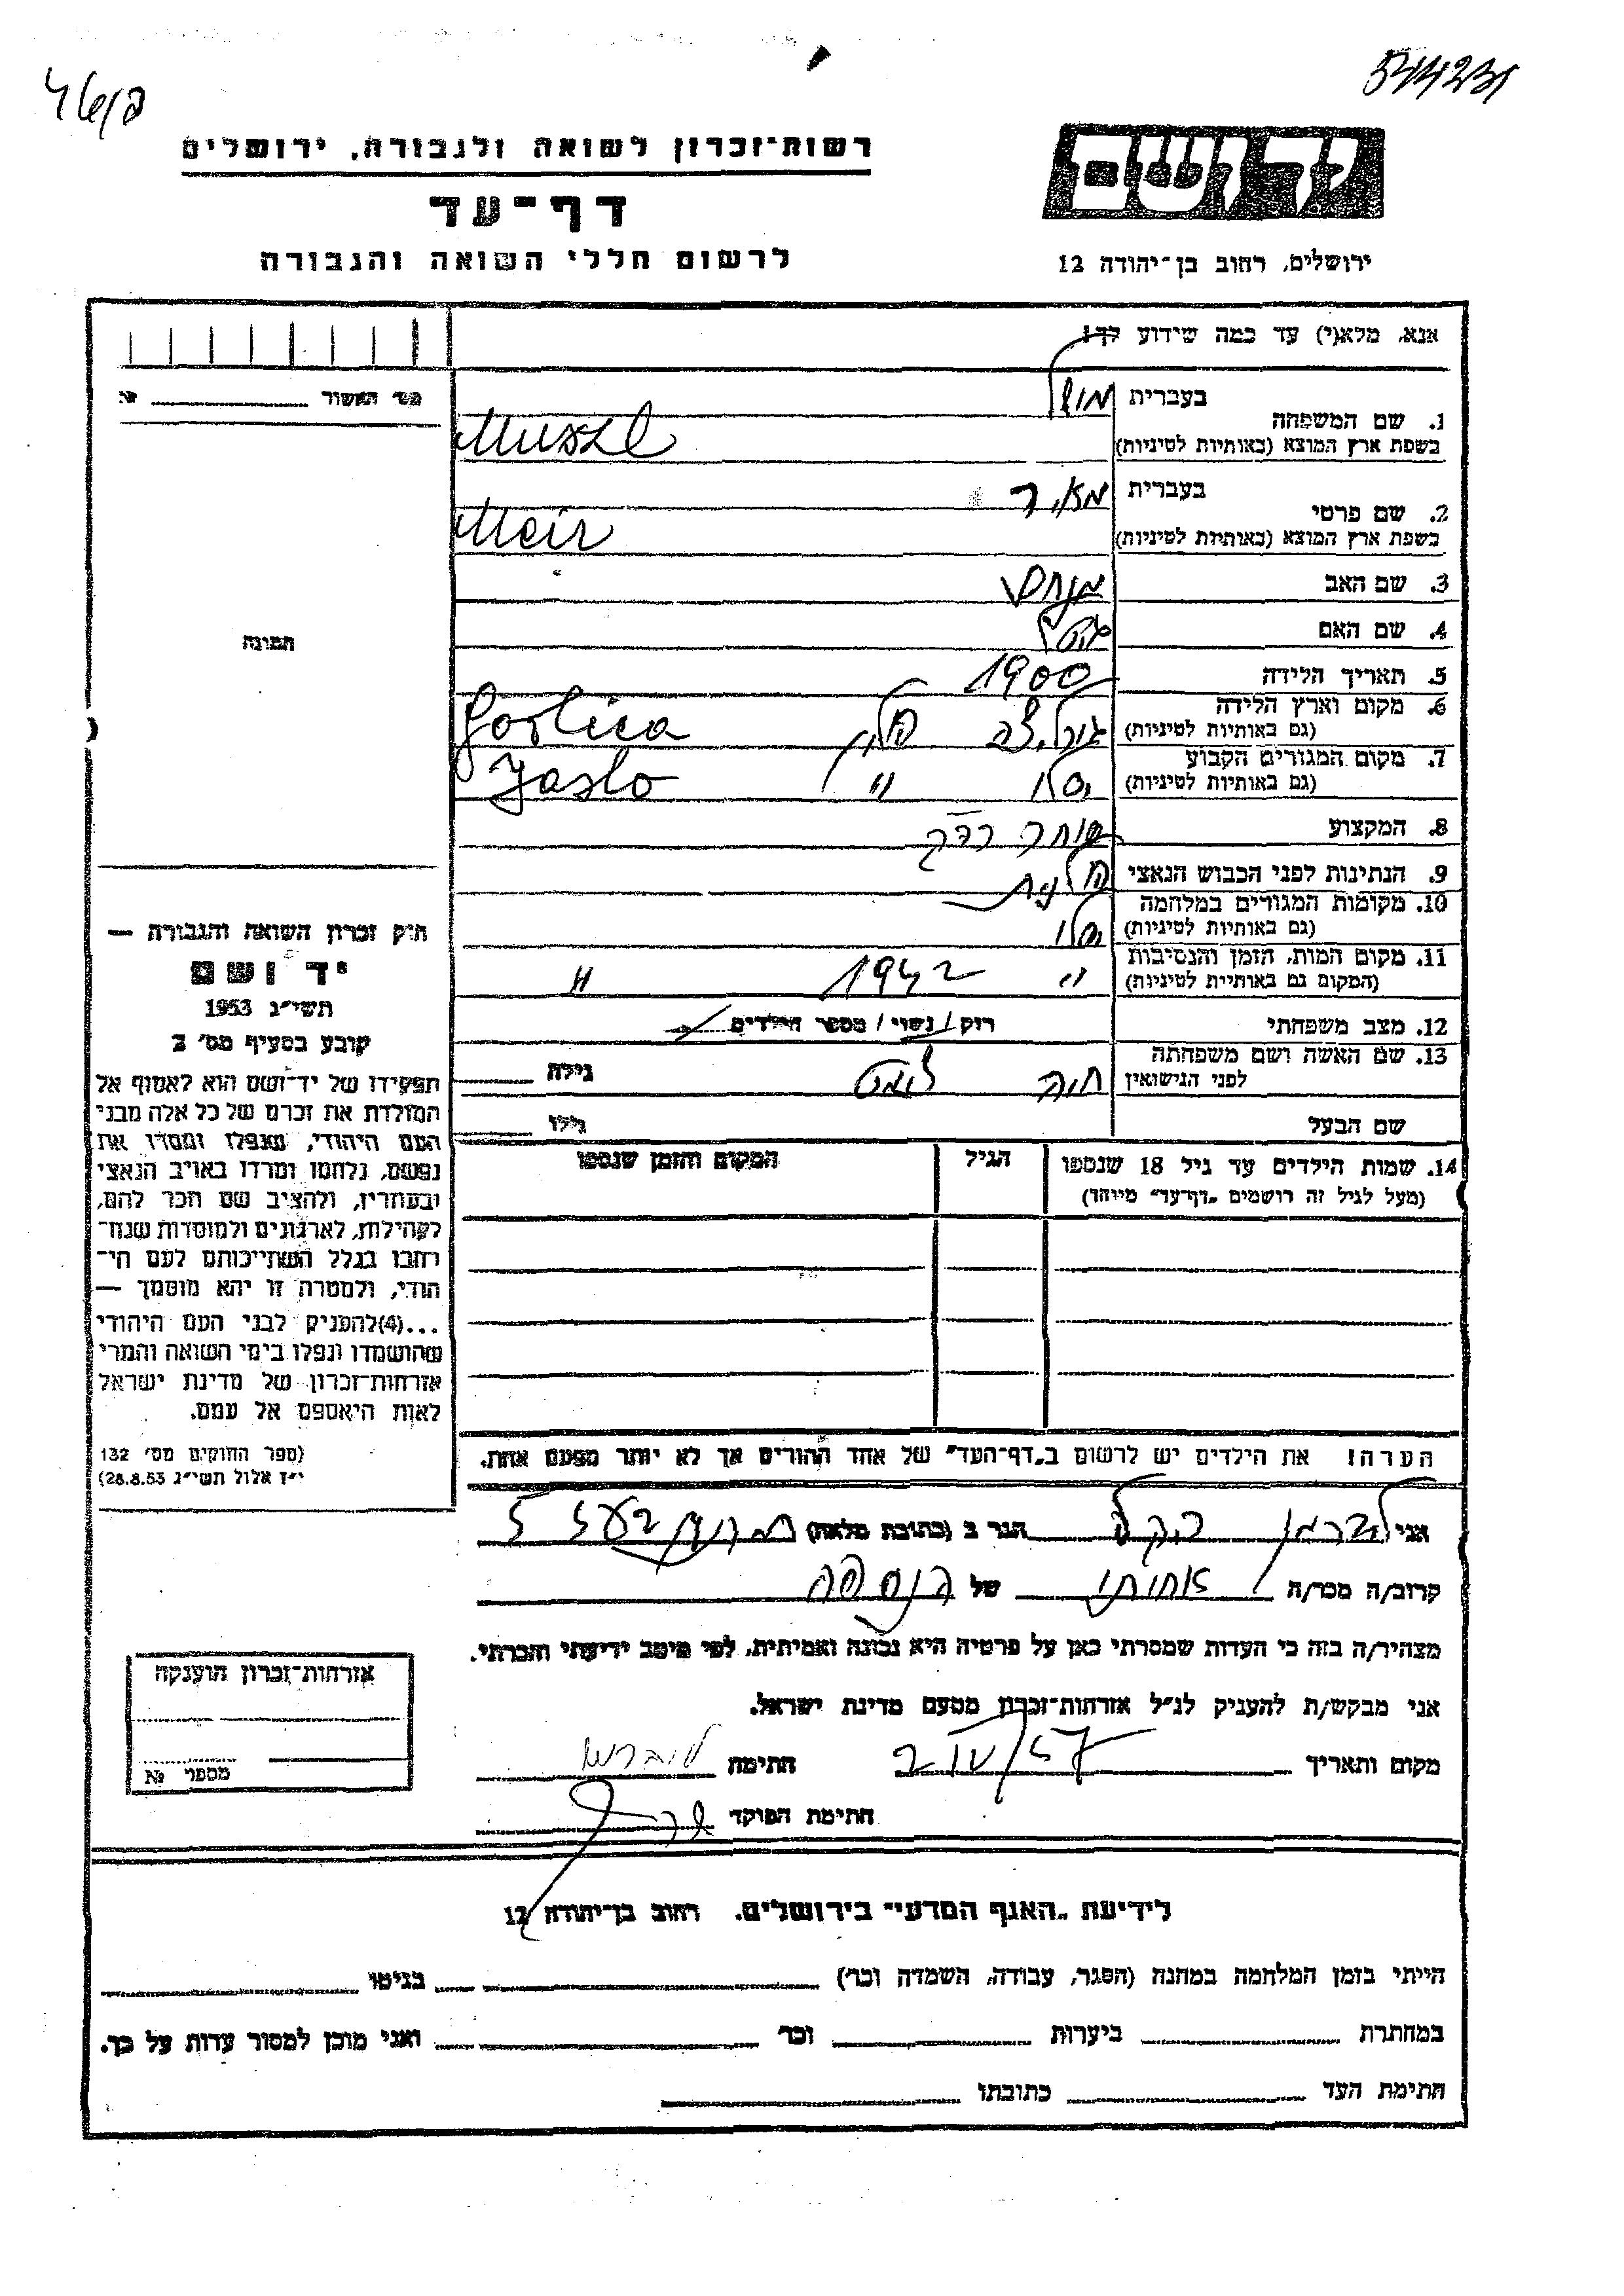 544231
רשות־זכרון לשואה ולגבורה, ירושלים
יד ושם
דף־עד
לרשום חללי השואה והגבורה
ירושלים, רחוב בן־יהודה 12
אנא, מלא(י) עד כמה שידוע לך!
מס' האשור № 
1. שם המשפחה
בעברית
בשפת ארץ המוצא (באותיות לטיניות) Muszl
2. שם פרטי
בעברית מאיר
בשפת ארץ המוצא (באותיות לטיניות) Meir
3. שם האב מנחם
4. שם האם
תמונה
5. תאריך הלידה 1900
6. מקום וארץ הלידה
(גם באותיות לטיניות) גורליצה פולין Gorlica
7. מקום המגורים הקבוע
(גם באותיות לטיניות) יסלו " Jaslo
8. המקצוע סוחר
9. הנתינות לפני הכבוש הנאצי פולנית
10. מקומות המגורים במלחמה
(גם באותיות לטיניות) יסלו
11. מקום המות, הזמן והנסיבות
(המקום גם באותיות לטיניות) " 1942 "
12. מצב משפחתי רוק / נשוי / מספר הילדים
13. שם האשה ושם משפחתה
לפני הנישואין חיה גילה
שם הבעל גילו
14. שמות הילדים עד גיל 18 שנספו
(מעל לגיל זה רושמים „דף־עד" מיוחד)
הגיל
המקום והזמן שנספו
חוק זכרון השואה והגבורה —
יד ושם
תשי״ג 1953
קובע בסעיף מס' 2
תפקידו של יד־ושם הוא לאסוף אל
המולדת את זכרם של כל אלה מבני
העם היהודי, שנפלו ומסרו את
נפשם, נלחמו ומרדו באויב הנאצי
ובעוזריו, ולהציב שם וזכר להם,
לקהילות, לארגונים ולמוסדות שנח־
רבו בגלל השתייכותם לעם הי־
הודי, ולמטרה זו יהא מוסמך —
...(4)להעניק לבני העם היהודי
שהושמדו ונפלו בימי השואה והמרי
אזרחות־זכרון של מדינת ישראל
לאות היאספם אל עמם.
(ספר החוקים מס' 132
י״ז אלול תשי״ג 28.8.53)
הערה! את הילדים יש לרשום ב„דף־העד" של אחד ההורים אך לא יותר מפעם אחת.
אני הגר ב (כתובת מלאה)
קרוב/ה מכר/ה אחותו של הנספה
מצהיר/ה בזה כי העדות שמסרתי כאן על פרטיה היא נכונה ואמיתית, לפי מיטב ידיעתי והכרתי.
אני מבקש/ת להעניק לנ״ל אזרחות־זכרון מטעם מדינת ישראל.
מקום ותאריך 2/IV/57 חתימה
חתימת הפוקד
אזרחות־זכרון הוענקה
מספר №
לידיעת „האגף המדעי" בירושלים, רחוב בן־יהודה 12
הייתי בזמן המלחמה במחנה (הסגר, עבודה, השמדה וכר') בגיטו
במחתרת ביערות וכר' ואני מוכן למסור עדות על כך.
חתימת העד כתובתו